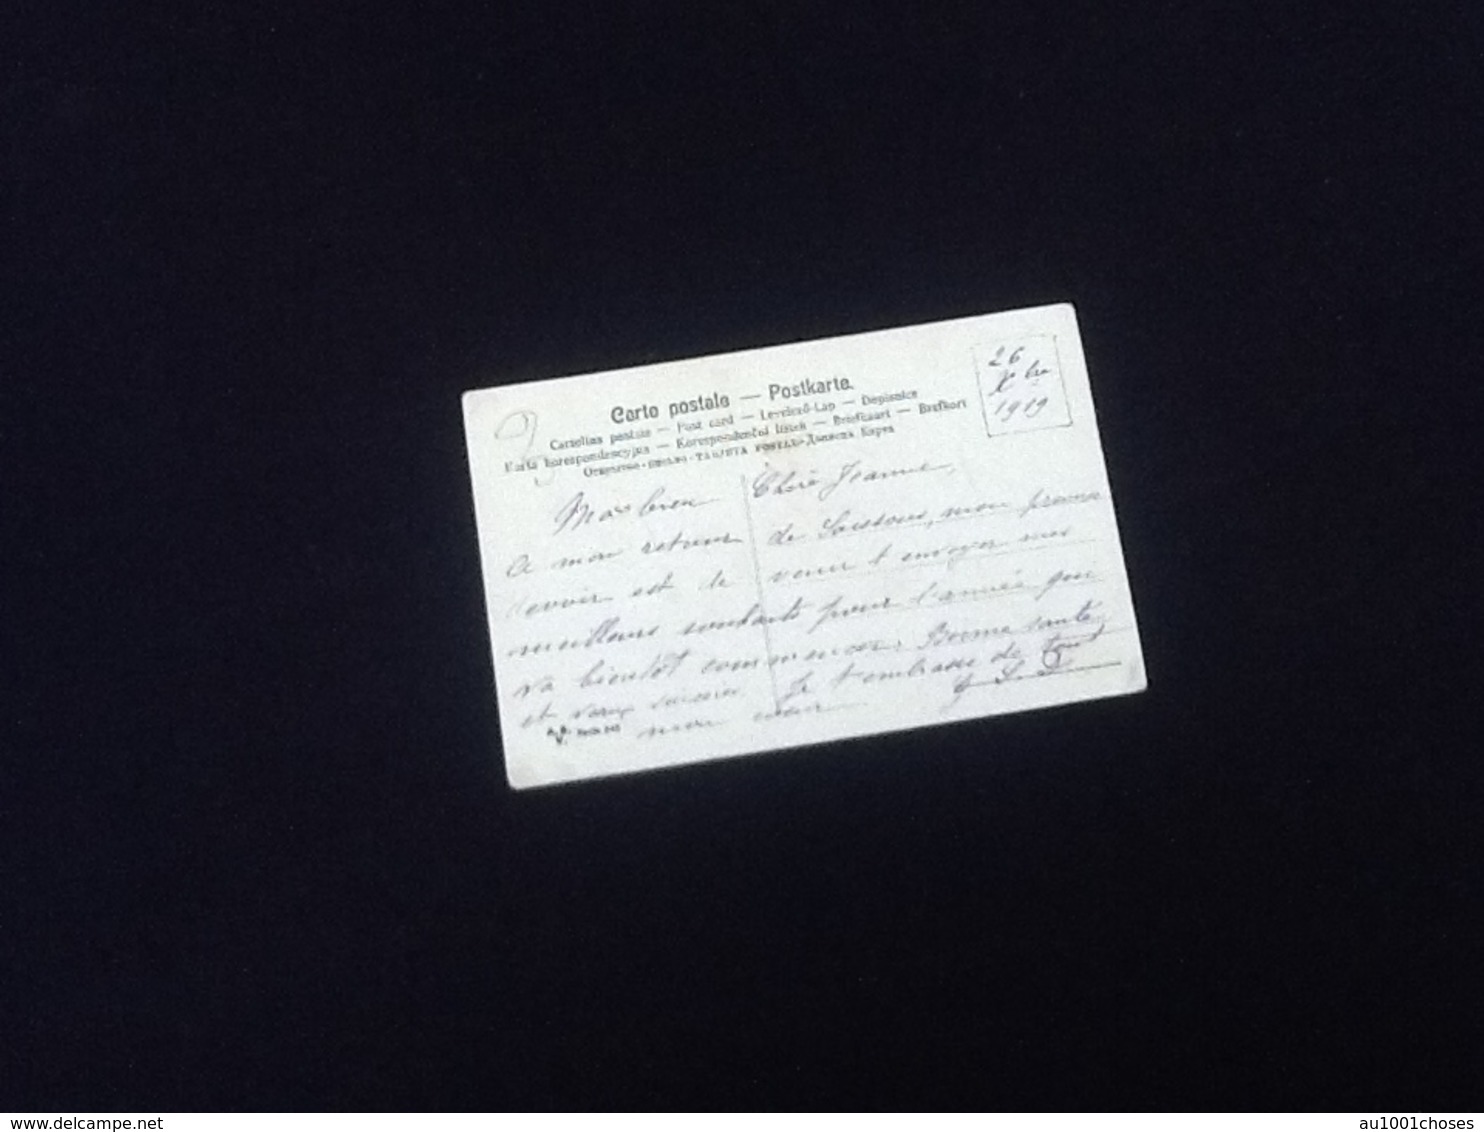 Carte postale — Postkarte.
Cartolina postale — Post card — Levelező-Lap — Dopisnice
Karta korespondencyjna — Korespondenční lístek — Briefkaart — Brefkort
TARJETA POSTAL
26
Xbre
1919
Ma bien Chère Jeanne,
A mon retour de Soissons, mon premier
devoir est de venir t'envoyer mes
meilleurs souhaits pour l'année qui
va bientôt commencer. Bonne santé,
et Je t'embrasse de tout
mon cœur
www.delcampe.net
au1001choses